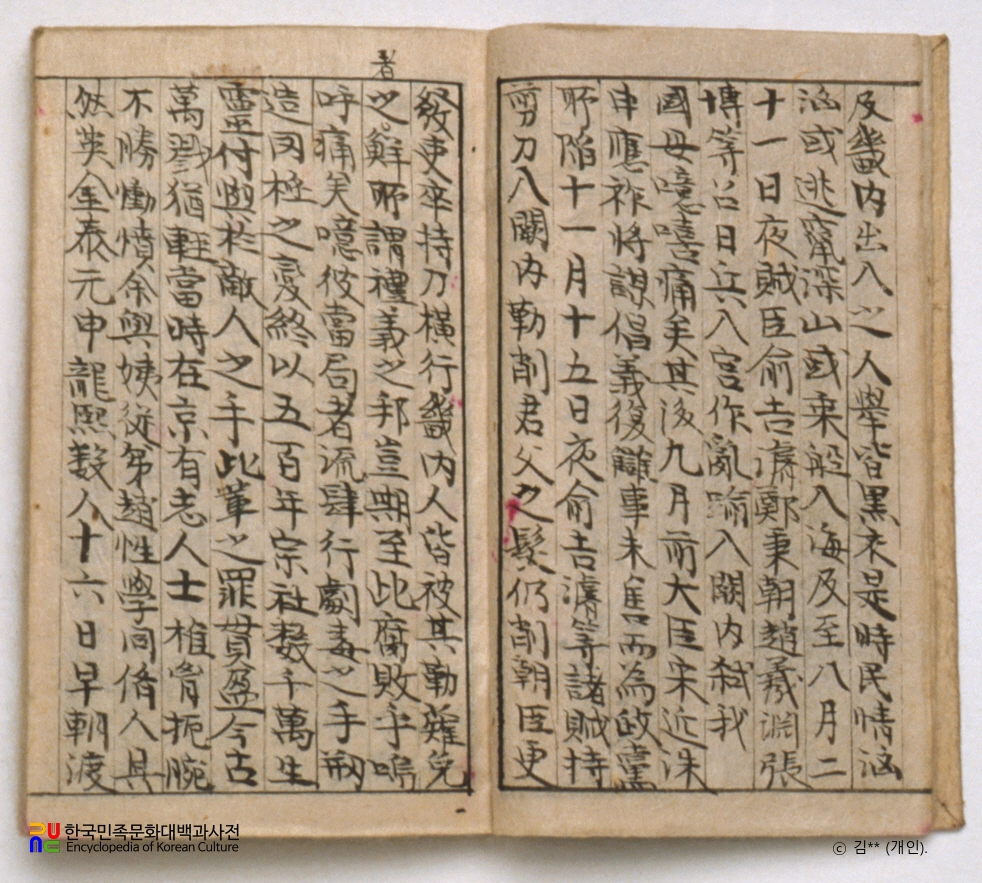 及畿内出入之人擧皆黑衣是時民情洶
洶或逃竄深山或乘船入海及至八月二
十一日夜賊臣俞吉濬鄭秉朝趙羲淵張
博等召日兵入宮作亂踰入闕内弑我
國母噫嘻痛矣其後九月前大臣宋近洙
申應祚將謀倡義復讎事未售而為
所陷十一月十五日夜俞吉濬等諸賊持
剪刀入闕内勒削君父之髮仍削朝臣更
發吏卒持刀橫行畿内人皆被其勒薙免
者
之鮮所謂禮義之邦豈期至此腐敗乎嗚
呼痛矣噫彼當局者流肆行劇毒之手
造罔極之變終以五百年宗社數千萬生
靈付與於敵人之手此輩之罪貫盈今古
萬戮猶輕當時在京有志人士椎胸扼腕
不勝慟憤余與姨從弟趙性學同偹人具
然英金泰元申龍熙數人十六日早朝渡
한국민족문화대백과사전
Encyclopedia of Korean Culture
ⓒ 김** (개인).